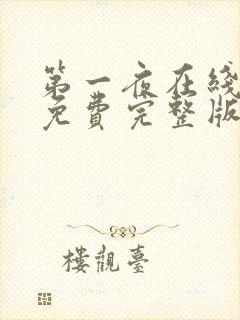 第一夜在綫
免費完整版
樓觀臺